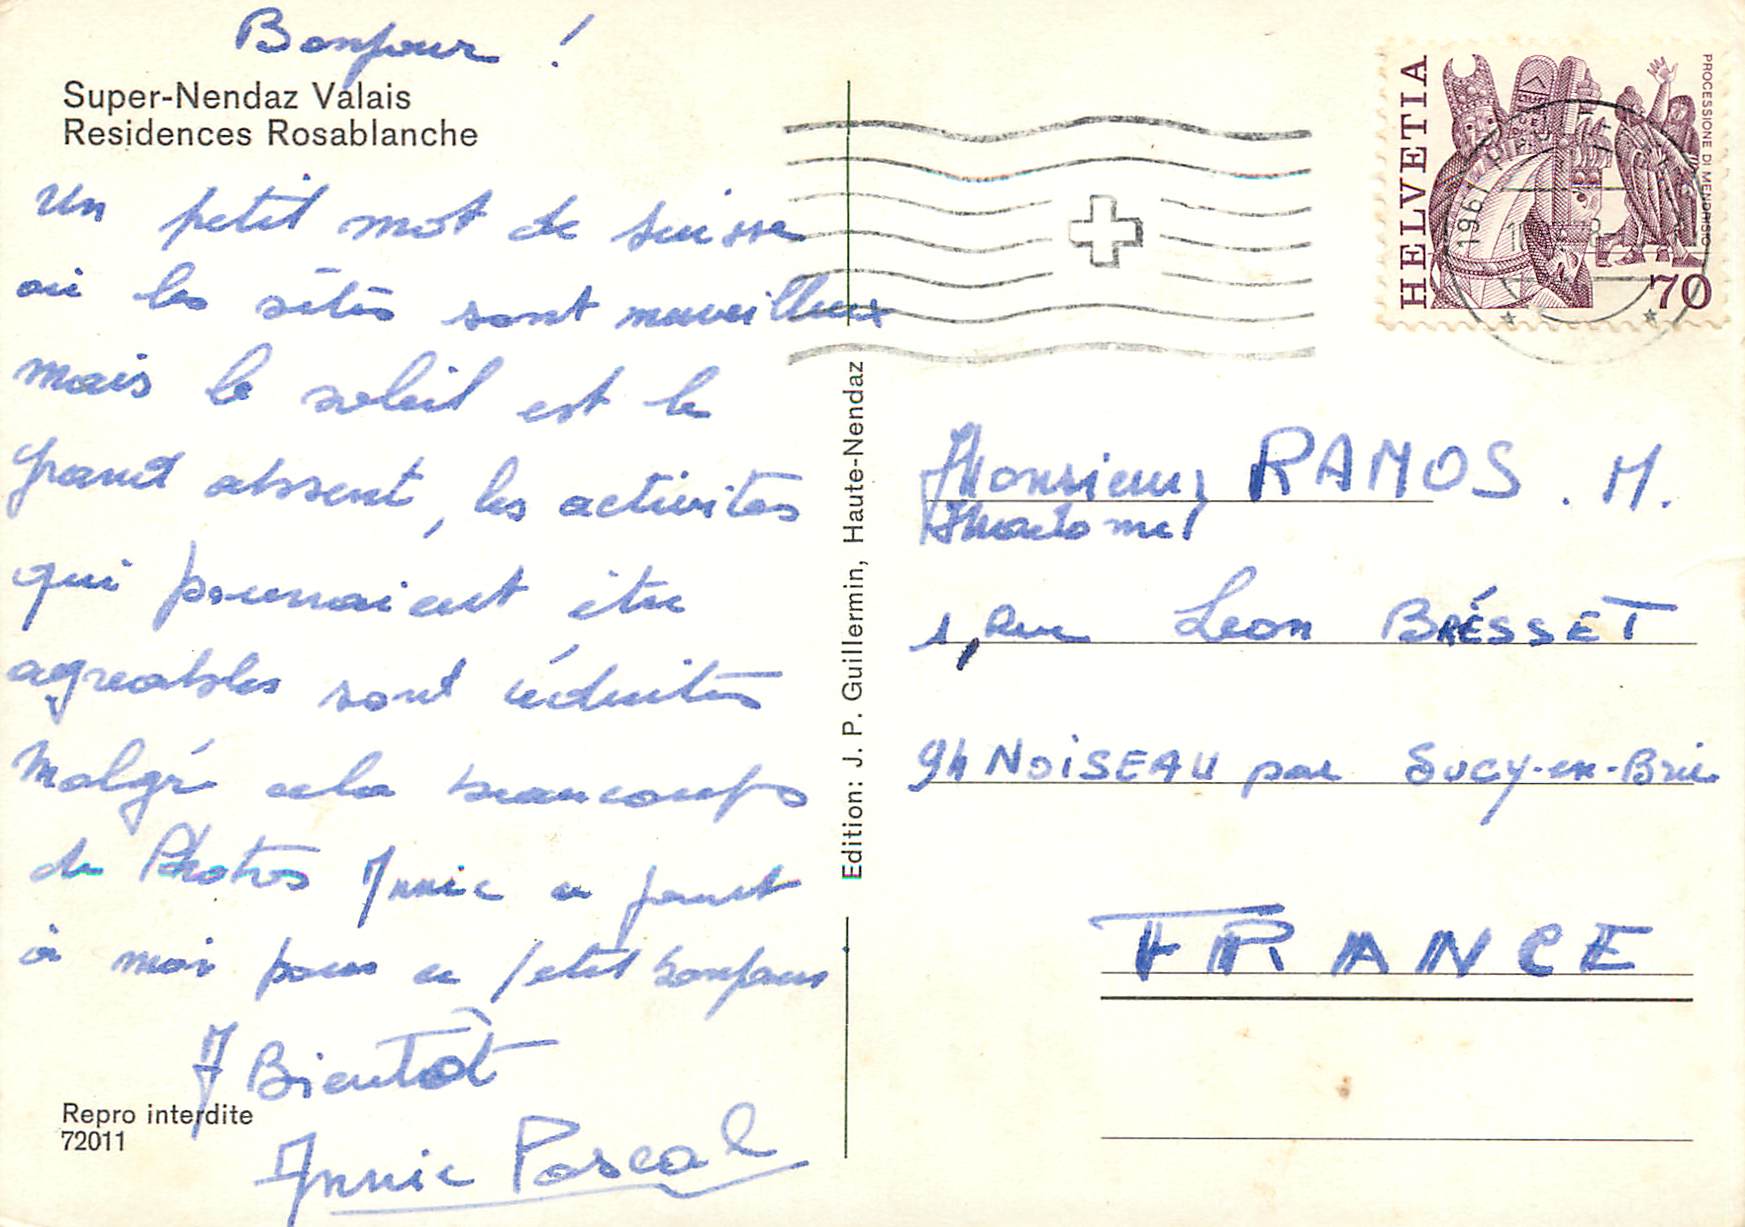 Bonjour !
Super-Nendaz Valais
Residences Rosablanche
Un petit mot de Suisse
où les sites sont merveilleux
mais le soleil est le
grand absent, les activites
qui pourraient être
agreables sont réduites
Malgré cela beaucoups
de Photos Annie ce joint
à moi pour ce petit bonjour
A Bientôt
Annie Pascal
Repro interdite
72011
Edition: J. P. Guillermin, Haute-Nendaz
HELVETIA
PROCESSIONE DI MENDRISIO
70
1961
Monsieur RAMOS . M.
1, Rue Leon BRÉSSET
94 NOISEAU par Sucy-en-Brie
FRANCE